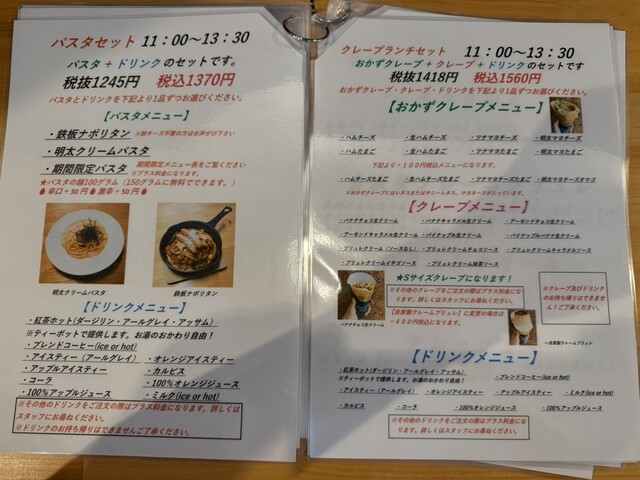 パスタセット 11：00～13：30
パスタ + ドリンク のセットです。
税抜1245円 税込1370円
パスタとドリンクを下記より1品ずつお選びください。
【パスタメニュー】
・鉄板ナポリタン ※粉チーズ不要の方はお声がけ下さい
・明太クリームパスタ
・期間限定パスタ 期間限定メニュー表をご覧ください
※プラス料金になります。
★パスタの麺100グラム（150グラムに無料でできます。）
辛口+30円 激辛+50円
明太クリームパスタ
鉄板ナポリタン
【ドリンクメニュー】
・紅茶ホット(ダージリン・アールグレイ・アッサム)
※ティーポットで提供します。お湯のおかわり自由！
・ブレンドコーヒー(ice or hot)
・アイスティー（アールグレイ） ・オレンジアイスティー
・アップルアイスティー ・カルピス
・コーラ ・100％オレンジジュース
・100％アップルジュース ・ミルク(ice or hot)
※その他のドリンクをご注文の際はプラス料金になります。詳しくは
スタッフにお尋ねください。
※ドリンクのお持ち帰りはできませんご了承ください。
クレープランチセット 11：00～13：30
おかずクレープ + クレープ + ドリンク のセットです
税抜1418円 税込1560円
おかずクレープ・クレープ・ドリンクを下記より1品ずつお選びください。
【おかずクレープメニュー】
・ハムチーズ ・生ハムチーズ ・ツナマヨチーズ ・明太マヨチーズ
・ハムたまご ・生ハムたまご ・ツナマヨたまご ・明太マヨたまご
下記より＋100円税込メニューになります。
・ハムチーズたまご ・生ハムチーズたまご ・ツナマヨチーズたまご ・明太マヨチーズタマゴ
※おかずクレープにはレタスまたはサニーレタス、マヨネーズが入っています。
【クレープメニュー】
・バナナチョコ生クリーム ・バナナキャラメル生クリーム ・アーモンドチョコ生クリーム
・アーモンドキャラメル生クリーム ・パイナップル生クリーム ・パイナップルバナナ生クリーム
・ブリュレクリーム（ソースなし） ・ブリュレクリームチョコソース ・ブリュレクリームキャラメルソース
・ブリュレクリームイチゴソース ・ブリュレクリーム抹茶ソース
★Sサイズクレープになります！
※その他のクレープをご注文の際はプラス料金になり
ます。詳しくはスタッフにお尋ねください。
【自家製クレームブリュレ】に変更の場合は
＋400円税込になります。
バナナチョコ生クリーム
※クレープ及びドリンク
のお持ち帰りはできませ
ん！ご了承ください。
・自家製クレームブリュレ
【ドリンクメニュー】
・紅茶ホット(ダージリン・アールグレイ・アッサム)
※ティーポットで提供します。お湯のおかわり自由！ ・ブレンドコーヒー(ice or hot)
・アイスティー（アールグレイ） ・オレンジアイスティー ・アップルアイスティー ・ミルク(ice or hot)
・カルピス ・コーラ ・100％オレンジジュース ・100％アップルジュース
※その他のドリンクをご注文の際はプラス料金になり
ます。詳しくはスタッフにお尋ねください。